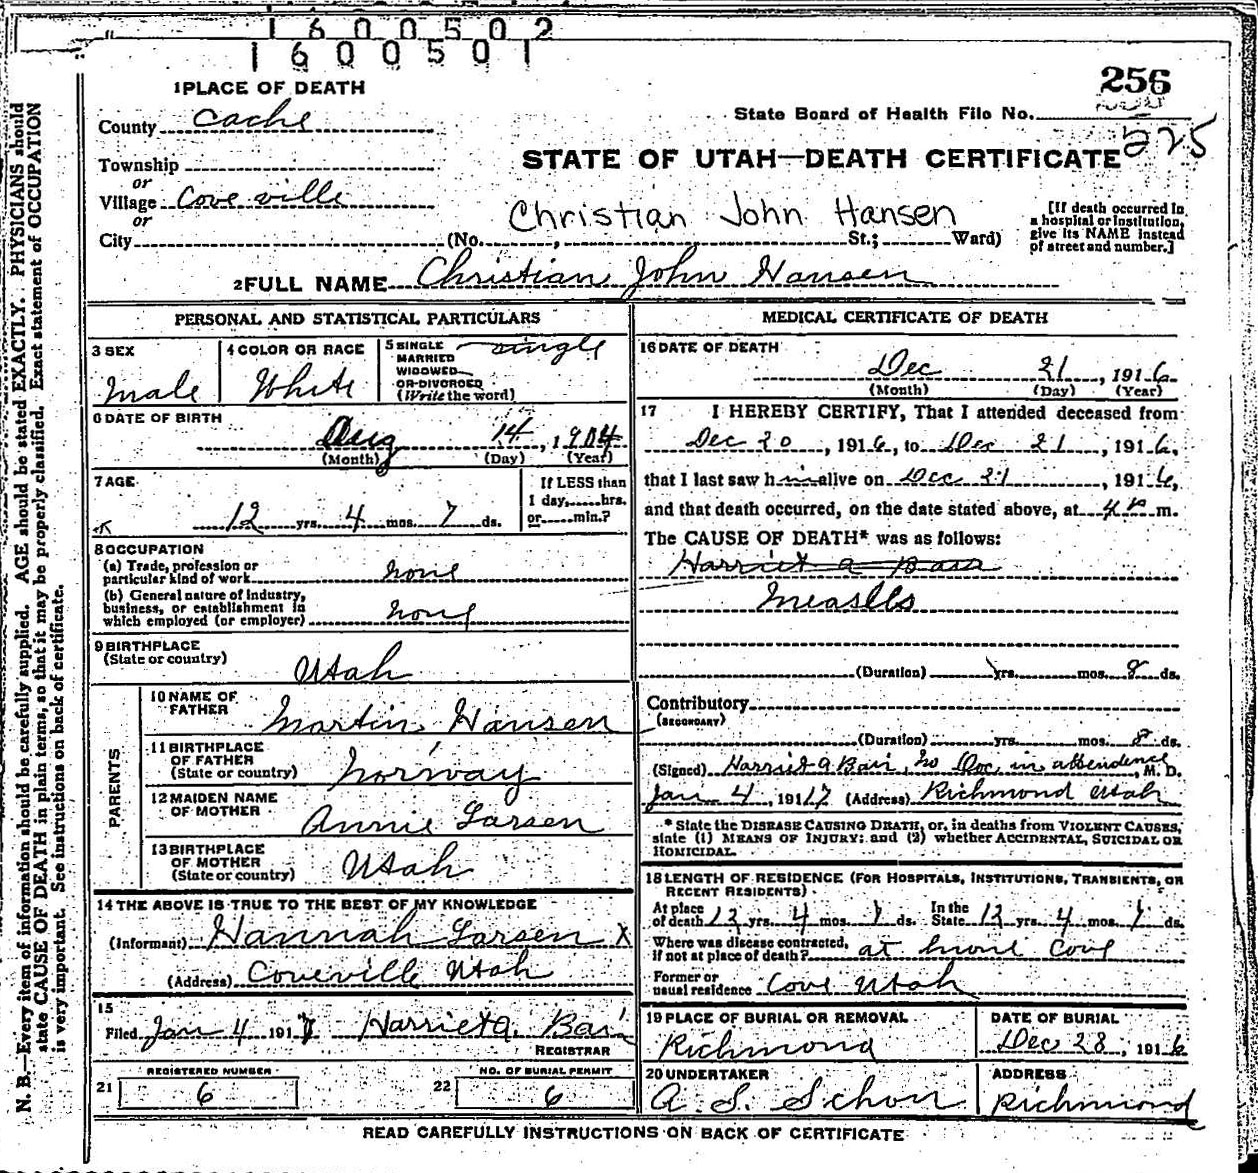 1600502
1600501
256
1 PLACE OF DEATH
State Board of Health File No.
225
County Cache
STATE OF UTAH—DEATH CERTIFICATE
Township
or
Village Cove ville
or
Christian John Hansen
[If death occurred in a hospital or institution, give its NAME instead of street and number.]
City (No. , St.; Ward)
2 FULL NAME Christian John Hansen
PERSONAL AND STATISTICAL PARTICULARS
3 SEX
Male
4 COLOR OR RACE
White
5 SINGLE
MARRIED
WIDOWED
OR DIVORCED
(Write the word)
single
6 DATE OF BIRTH
Aug 14, 1904
(Month) (Day) (Year)
7 AGE
12 yrs. 4 mos. 7 ds.
If LESS than
1 day, hrs.
or min.?
8 OCCUPATION
(a) Trade, profession or
particular kind of work none
(b) General nature of industry,
business, or establishment in
which employed (or employer) none
9 BIRTHPLACE
(State or country) Utah
PARENTS
10 NAME OF
FATHER Martin Hansen
11 BIRTHPLACE
OF FATHER
(State or country) Norway
12 MAIDEN NAME
OF MOTHER Annie Larsen
13 BIRTHPLACE
OF MOTHER
(State or country) Utah
14 THE ABOVE IS TRUE TO THE BEST OF MY KNOWLEDGE
(Informant) Hannah Larsen X
(Address) Coveville Utah
15
Filed Jan 4 1917 Harriet a. Bair
REGISTRAR
REGISTERED NUMBER
21 6
NO. OF BURIAL PERMIT
22 6
MEDICAL CERTIFICATE OF DEATH
16 DATE OF DEATH
Dec 21, 1916
(Month) (Day) (Year)
17 I HEREBY CERTIFY, That I attended deceased from
Dec 20, 1916, to Dec 21, 1916,
that I last saw him alive on Dec 21, 1916,
and that death occurred, on the date stated above, at 4 P m.
The CAUSE OF DEATH* was as follows:
Harriet a Bair
Measlls
(Duration) yrs. mos. 8 ds.
Contributory
(SECONDARY)
(Duration) yrs. mos. 8 ds.
(Signed) Harriet a Bair, no Doc in attendence, M. D.
Jan 4, 1917 (Address) Richmond Utah
* State the DISEASE CAUSING DEATH, or, in deaths from VIOLENT CAUSES,
state (1) MEANS OF INJURY; and (2) whether ACCIDENTAL, SUICIDAL OR
HOMICIDAL.
18 LENGTH OF RESIDENCE (FOR HOSPITALS, INSTITUTIONS, TRANSIENTS, OR
RECENT RESIDENTS)
At place of death 12 yrs. 4 mos. 7 ds. In the State 12 yrs. 4 mos. 7 ds.
Where was disease contracted,
if not at place of death? at home Cove
Former or
usual residence Cove Utah
19 PLACE OF BURIAL OR REMOVAL
Richmond
DATE OF BURIAL
Dec 28, 1916
20 UNDERTAKER
A. S. Schow
ADDRESS
Richmond
READ CAREFULLY INSTRUCTIONS ON BACK OF CERTIFICATE
N. B.—Every item of information should be carefully supplied. AGE should be stated EXACTLY. PHYSICIANS should
state CAUSE OF DEATH in plain terms, so that it may be properly classified. Exact statement of OCCUPATION
is very important. See instructions on back of certificate.